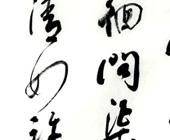 徊問渠
清如許